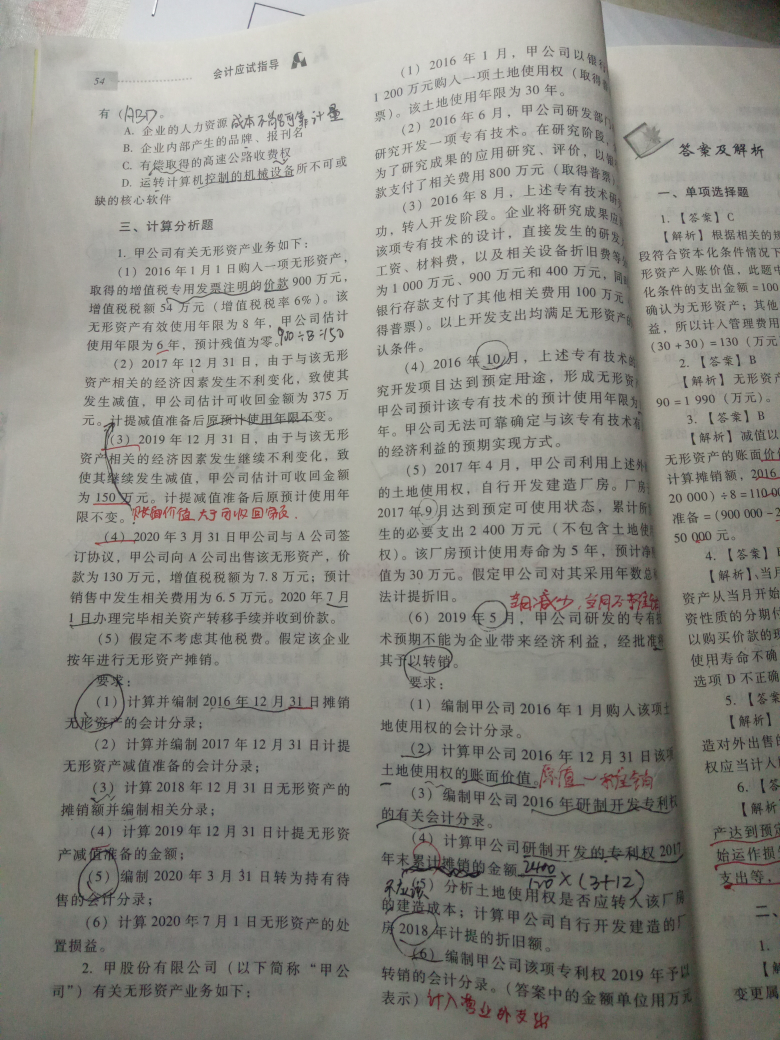 54 会计应试指导
有（ABD）。
A. 企业的人力资源 成本不能可靠计量
B. 企业内部产生的品牌、报刊名
C. 有偿取得的高速公路收费权
D. 运转计算机控制的机械设备所不可或
缺的核心软件
三、计算分析题
1. 甲公司有关无形资产业务如下：
（1）2016 年 1 月 1 日购入一项无形资产，
取得的增值税专用发票注明的价款 900 万元，
增值税税额 54 万元（增值税税率 6%）。该
无形资产有效使用年限为 8 年，甲公司估计
使用年限为 6 年，预计残值为零。
（2）2017 年 12 月 31 日，由于与该无形
资产相关的经济因素发生不利变化，致使其
发生减值，甲公司估计可收回金额为 375 万
元。计提减值准备后原预计使用年限不变。
（3）2019 年 12 月 31 日，由于与该无形
资产相关的经济因素发生继续不利变化，致
使其继续发生减值，甲公司估计可收回金额
为 150 万元。计提减值准备后原预计使用年
限不变。 账面价值大于可收回金额.
（4）2020 年 3 月 31 日甲公司与 A 公司签
订协议，甲公司向 A 公司出售该无形资产，价
款为 130 万元，增值税税额为 7.8 万元；预计
销售中发生相关费用为 6.5 万元。2020 年 7 月
1 日办理完毕相关资产转移手续并收到价款。
（5）假定不考虑其他税费。假定该企业
按年进行无形资产摊销。
要求：
（1）计算并编制 2016 年 12 月 31 日摊销
无形资产的会计分录；
（2）计算并编制 2017 年 12 月 31 日计提
无形资产减值准备的会计分录；
（3）计算 2018 年 12 月 31 日无形资产的
摊销额并编制相关分录；
（4）计算 2019 年 12 月 31 日计提无形资
产减值准备的金额；
（5）编制 2020 年 3 月 31 日转为持有待
售的会计分录；
（6）计算 2020 年 7 月 1 日无形资产的处
置损益。
2. 甲股份有限公司（以下简称“甲公
司”）有关无形资产业务如下：
（1）2016 年 1 月，甲公司以银行
1 200 万元购入一项土地使用权（取得
票）。该土地使用年限为 30 年。
（2）2016 年 6 月，甲公司研发部门
研究开发一项专有技术。在研究阶段，
为了研究成果的应用研究、评价，以银
款支付了相关费用 800 万元（取得普票）
（3）2016 年 8 月，上述专有技术研
功，转入开发阶段。企业将研究成果应
该项专有技术的设计，直接发生的研发人
工资、材料费，以及相关设备折旧费等
为 1 000 万元、900 万元和 400 万元，同
银行存款支付了其他相关费用 100 万元
得普票）。以上开发支出均满足无形资产的
认条件。
（4）2016 年 10 月，上述专有技术的
究开发项目达到预定用途，形成无形资
甲公司预计该专有技术的预计使用年限为
年。甲公司无法可靠确定与该专有技术有
的经济利益的预期实现方式。
（5）2017 年 4 月，甲公司利用上述外
的土地使用权，自行开发建造厂房。厂房
2017 年 9 月达到预定可使用状态，累计所
生的必要支出 2 400 万元（不包含土地使
权）。该厂房预计使用寿命为 5 年，预计净
值为 30 万元。假定甲公司对其采用年数总
法计提折旧。
（6）2019 年 5 月，甲公司研发的专有
术预期不能为企业带来经济利益，经批准
其予以转销。
要求：
（1）编制甲公司 2016 年 1 月购入该项土
地使用权的会计分录。
（2）计算甲公司 2016 年 12 月 31 日该项
土地使用权的账面价值。
（3）编制甲公司 2016 年研制开发专利权
的有关会计分录。
（4）计算甲公司研制开发的专利权 2017
年末累计摊销的金额 2400/120×(3+12)
不应该
（5）分析土地使用权是否应转入该厂房
的建造成本；计算甲公司自行开发建造的厂
房 2018 年计提的折旧额。
（6）编制甲公司该项专利权 2019 年予以
转销的会计分录。（答案中的金额单位用万元
表示） 计入营业外支出
答案及解析
一、单项选择题
1.【答案】C
【解析】根据相关的规
段符合资本化条件情况下
形资产入账价值，此题中
化条件的支出金额=100
确认为无形资产；其他
益，所以计入管理费用
（30+30）=130（万元
2.【答案】B
【解析】无形资产
90=1 990（万元）。
3.【答案】B
【解析】减值以
无形资产的账面价值
计算摊销额，2016
20 000）÷8=110 00
准备=（900 000-2
50 000 元。
4.【答案】
【解析】当月
资产从当月开始
资性质的分期付
以购买价款的现
使用寿命不确
选项 D 不正确
5.【答案
【解析】
造对外出售的
权应当计入
6.【答
【解析
产达到预定
始运作损
支出等，
二、
1.
【解
变更属